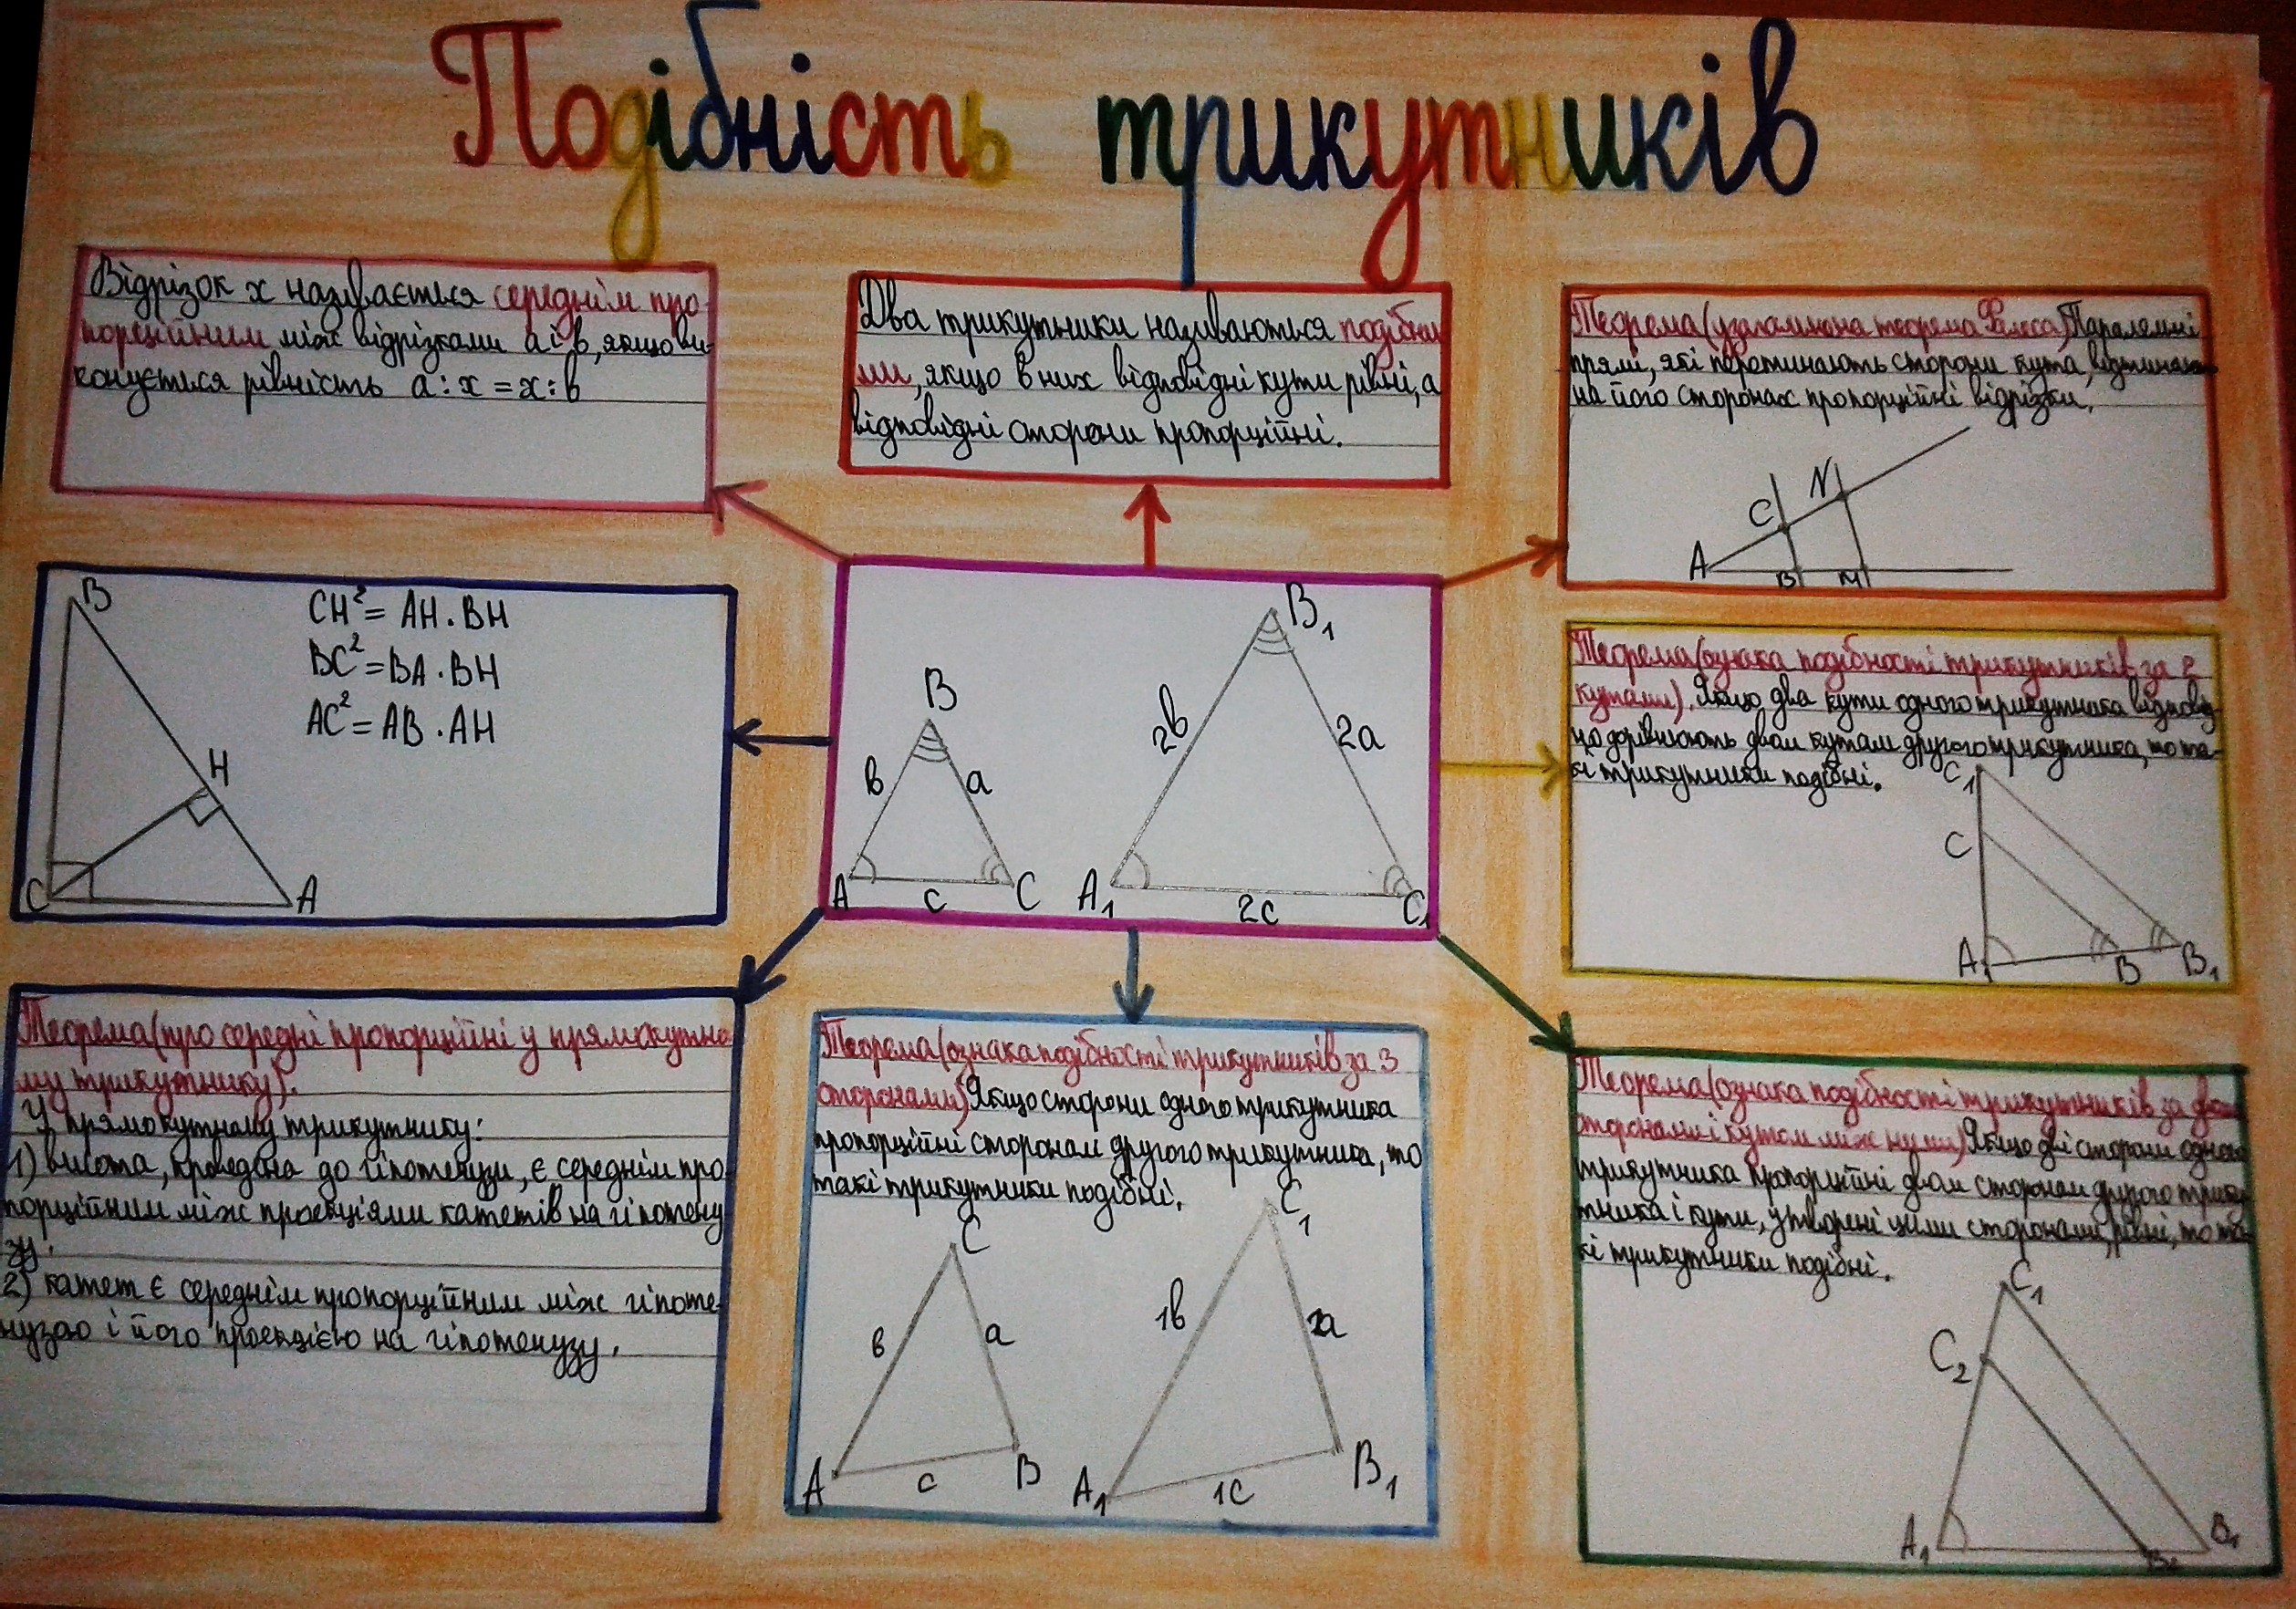 Подібність трикутників
Відрізок x називається середнім про-
порційним між відрізками a і b, якщо ви-
конується рівність a : x = x : b
Два трикутники називаються подібни
ми, якщо в них відповідні кути рівні, а
відповідні сторони пропорційні.
Теорема (узагальнена теорема Фалеса) Паралельні
прямі, які перетинають сторони кута, відтинають
на його сторонах пропорційні відрізки.
N
C
A
B
M
B
CH²= AH . BH
BC²= BA . BH
AC²= AB . AH
H
C
A
B₁
B
2b
2a
b
a
A
c
C
A₁
2c
C₁
Теорема (ознака подібності трикутників за 2
кутами). Якщо два кути одного трикутника відповід-
но дорівнюють двом кутам другого трикутника, то та-
кі трикутники подібні.
C₁
C
A₁
B
B₁
Теорема (про середні пропорційні у прямокутно
му трикутнику).
У прямокутному трикутнику:
1) висота, проведена до гіпотенузи, є середнім про-
порційним між проекціями катетів на гіпотену
зу.
2) катет є середнім пропорційним між гіпоте-
нузою і його проекцією на гіпотенузу.
Теорема (ознака подібності трикутників за 3
сторонами) Якщо сторони одного трикутника
пропорційні сторонам другого трикутника, то
такі трикутники подібні.
C
C₁
b
a
1b
a
A
c
B
A₁
1c
B₁
Теорема (ознака подібності трикутників за двома
сторонами і кутом між ними) Якщо дві сторони одного
трикутника пропорційні двом сторонам другого трику
тника і кути, утворені цими сторонами, рівні, то та-
кі трикутники подібні.
C₁
C₂
A₁
B₂
B₁